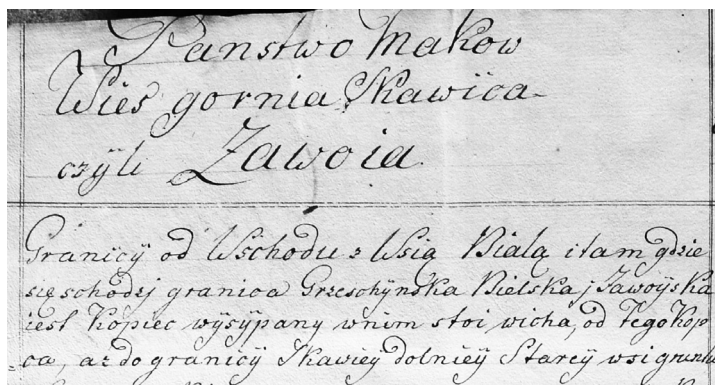 Panstwo Makow
Wies gornia Skawica
czÿli Zawoia
Granicÿ od Wschodu z Wsią Białą i tam gdzie
się schodzj granica Grzeschÿnska Bielska j Zawoÿska
iest Kopiec wÿsÿpany w nim stoi wicha, od tego Kop
ca, az do granicÿ Skawicÿ dolnieÿ Stareÿ wsi gruntu